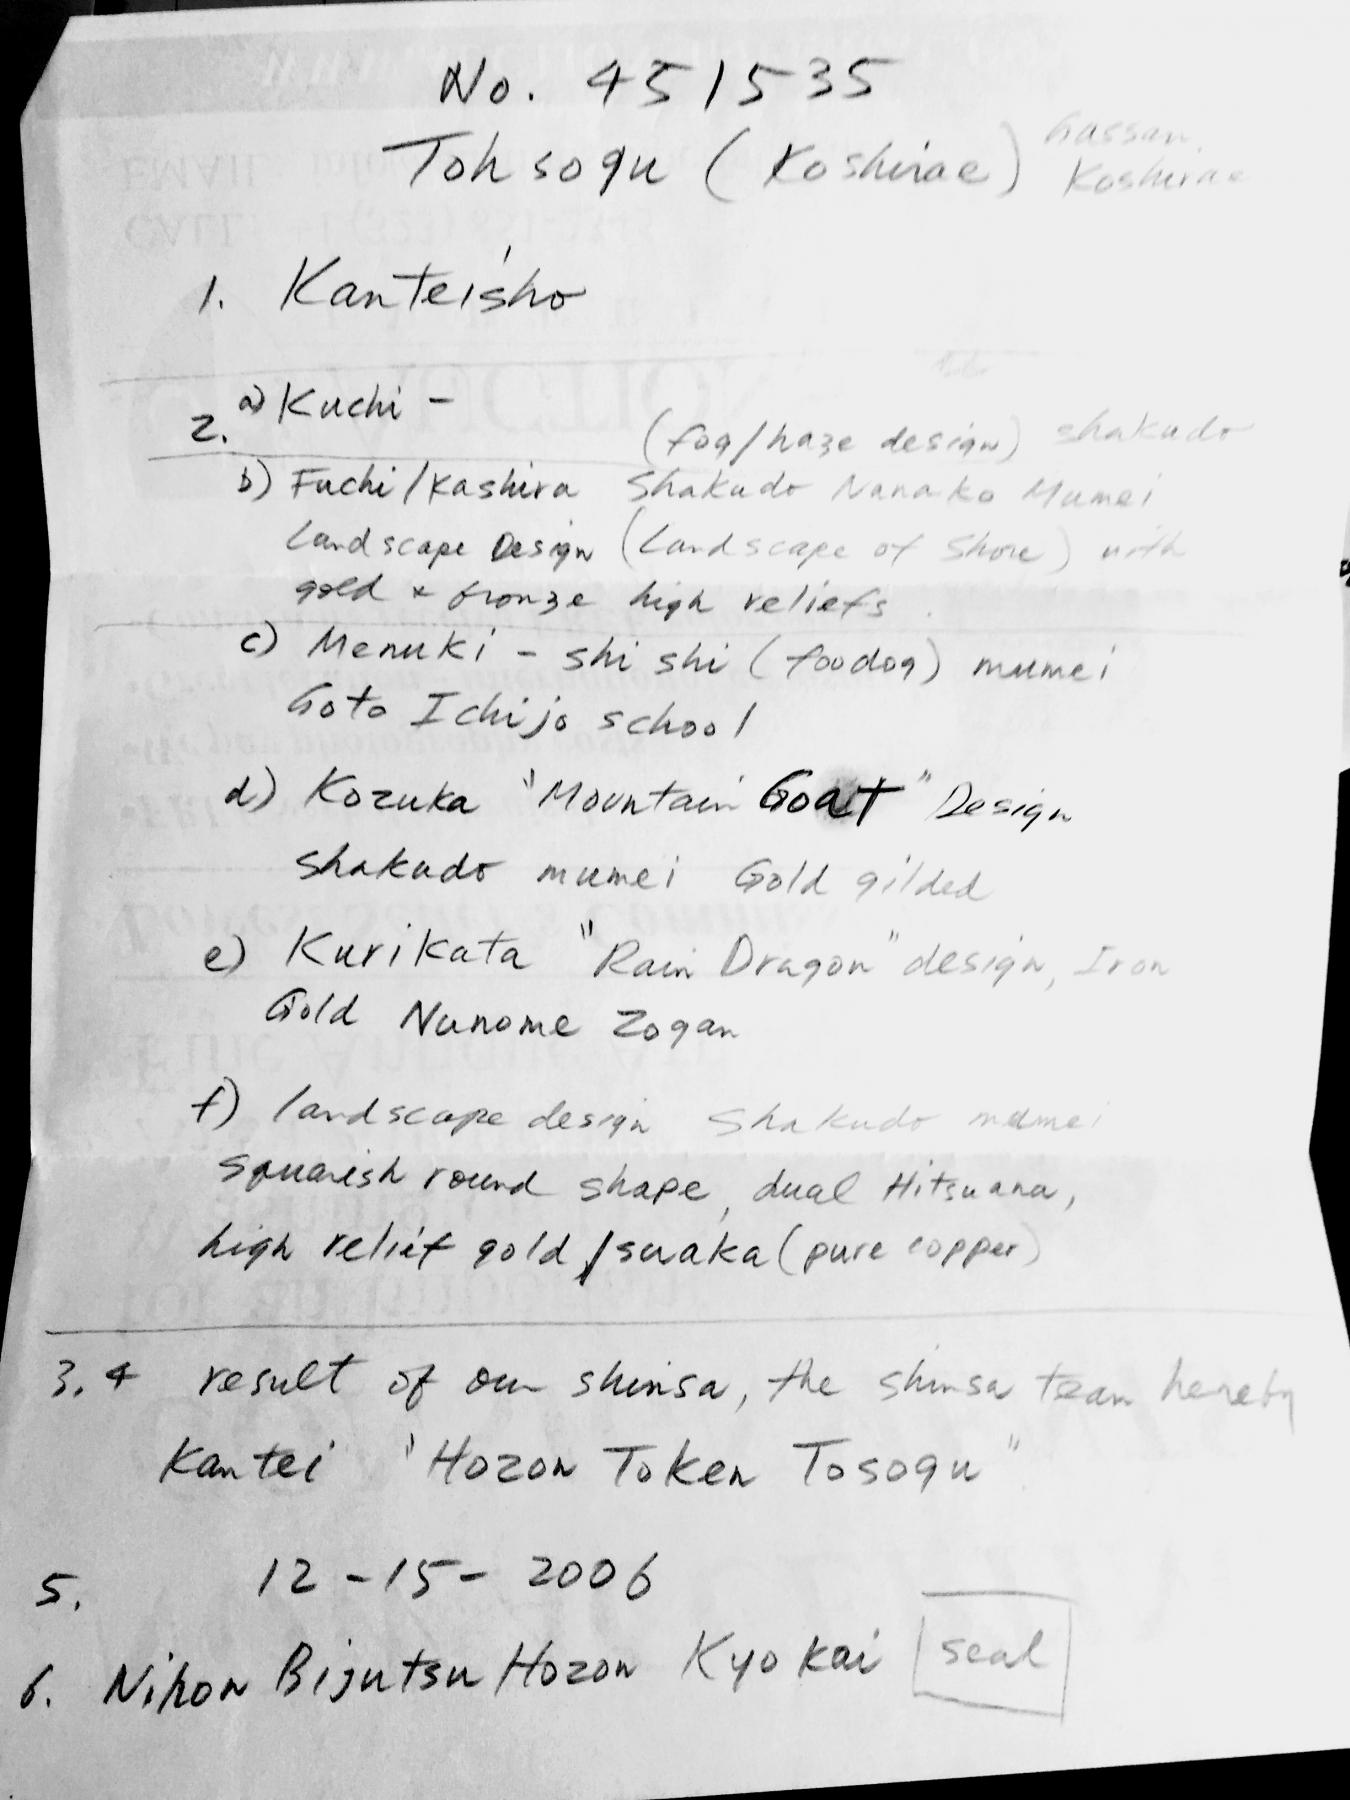 No. 451535
Tohsogu (Koshirae) Gassan
Koshirae
1. Kanteisho
2. a) Kuchi -
(fog/haze design) shakudo
b) Fuchi/Kashira Shakudo Nanako Mumei
Landscape Design (Landscape of Shore) with
gold & bronze high reliefs.
c) Menuki - shi shi (foodog) mumei
Goto Ichijo school
d) Kozuka "Mountain Goat" Design
shakudo mumei Gold gilded
e) Kurikata "Rain Dragon" design, Iron
Gold Nunome Zogan
f) landscape design Shakudo mumei
squarish round shape, dual Hitsuana,
high relief gold/suaka (pure copper)
3. 4 result of our shinsa, the shinsa team hereby
Kantei "Hozon Token Tosogu"
5. 12-15-2006
6. Nihon Bijutsu Hozon Kyokai seal